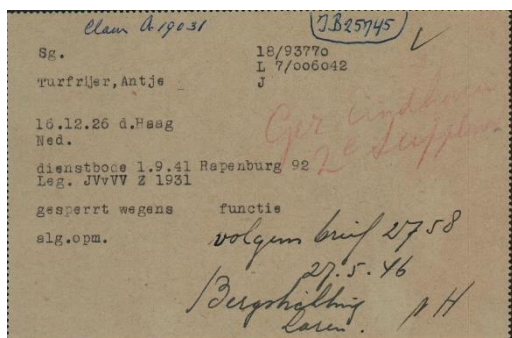 Claim A 19031
JB25745
Sg. 18/93770
L 7/006042
Turfrijer, Antje J
16.12.26 d.Haag
Ned.
dienstbode 1.9.41 Rapenburg 92
Leg. JVvVV Z 1931
gesperrt wegens functie
slg.opm.
volgens brief 2758
27.5.46
Laren.